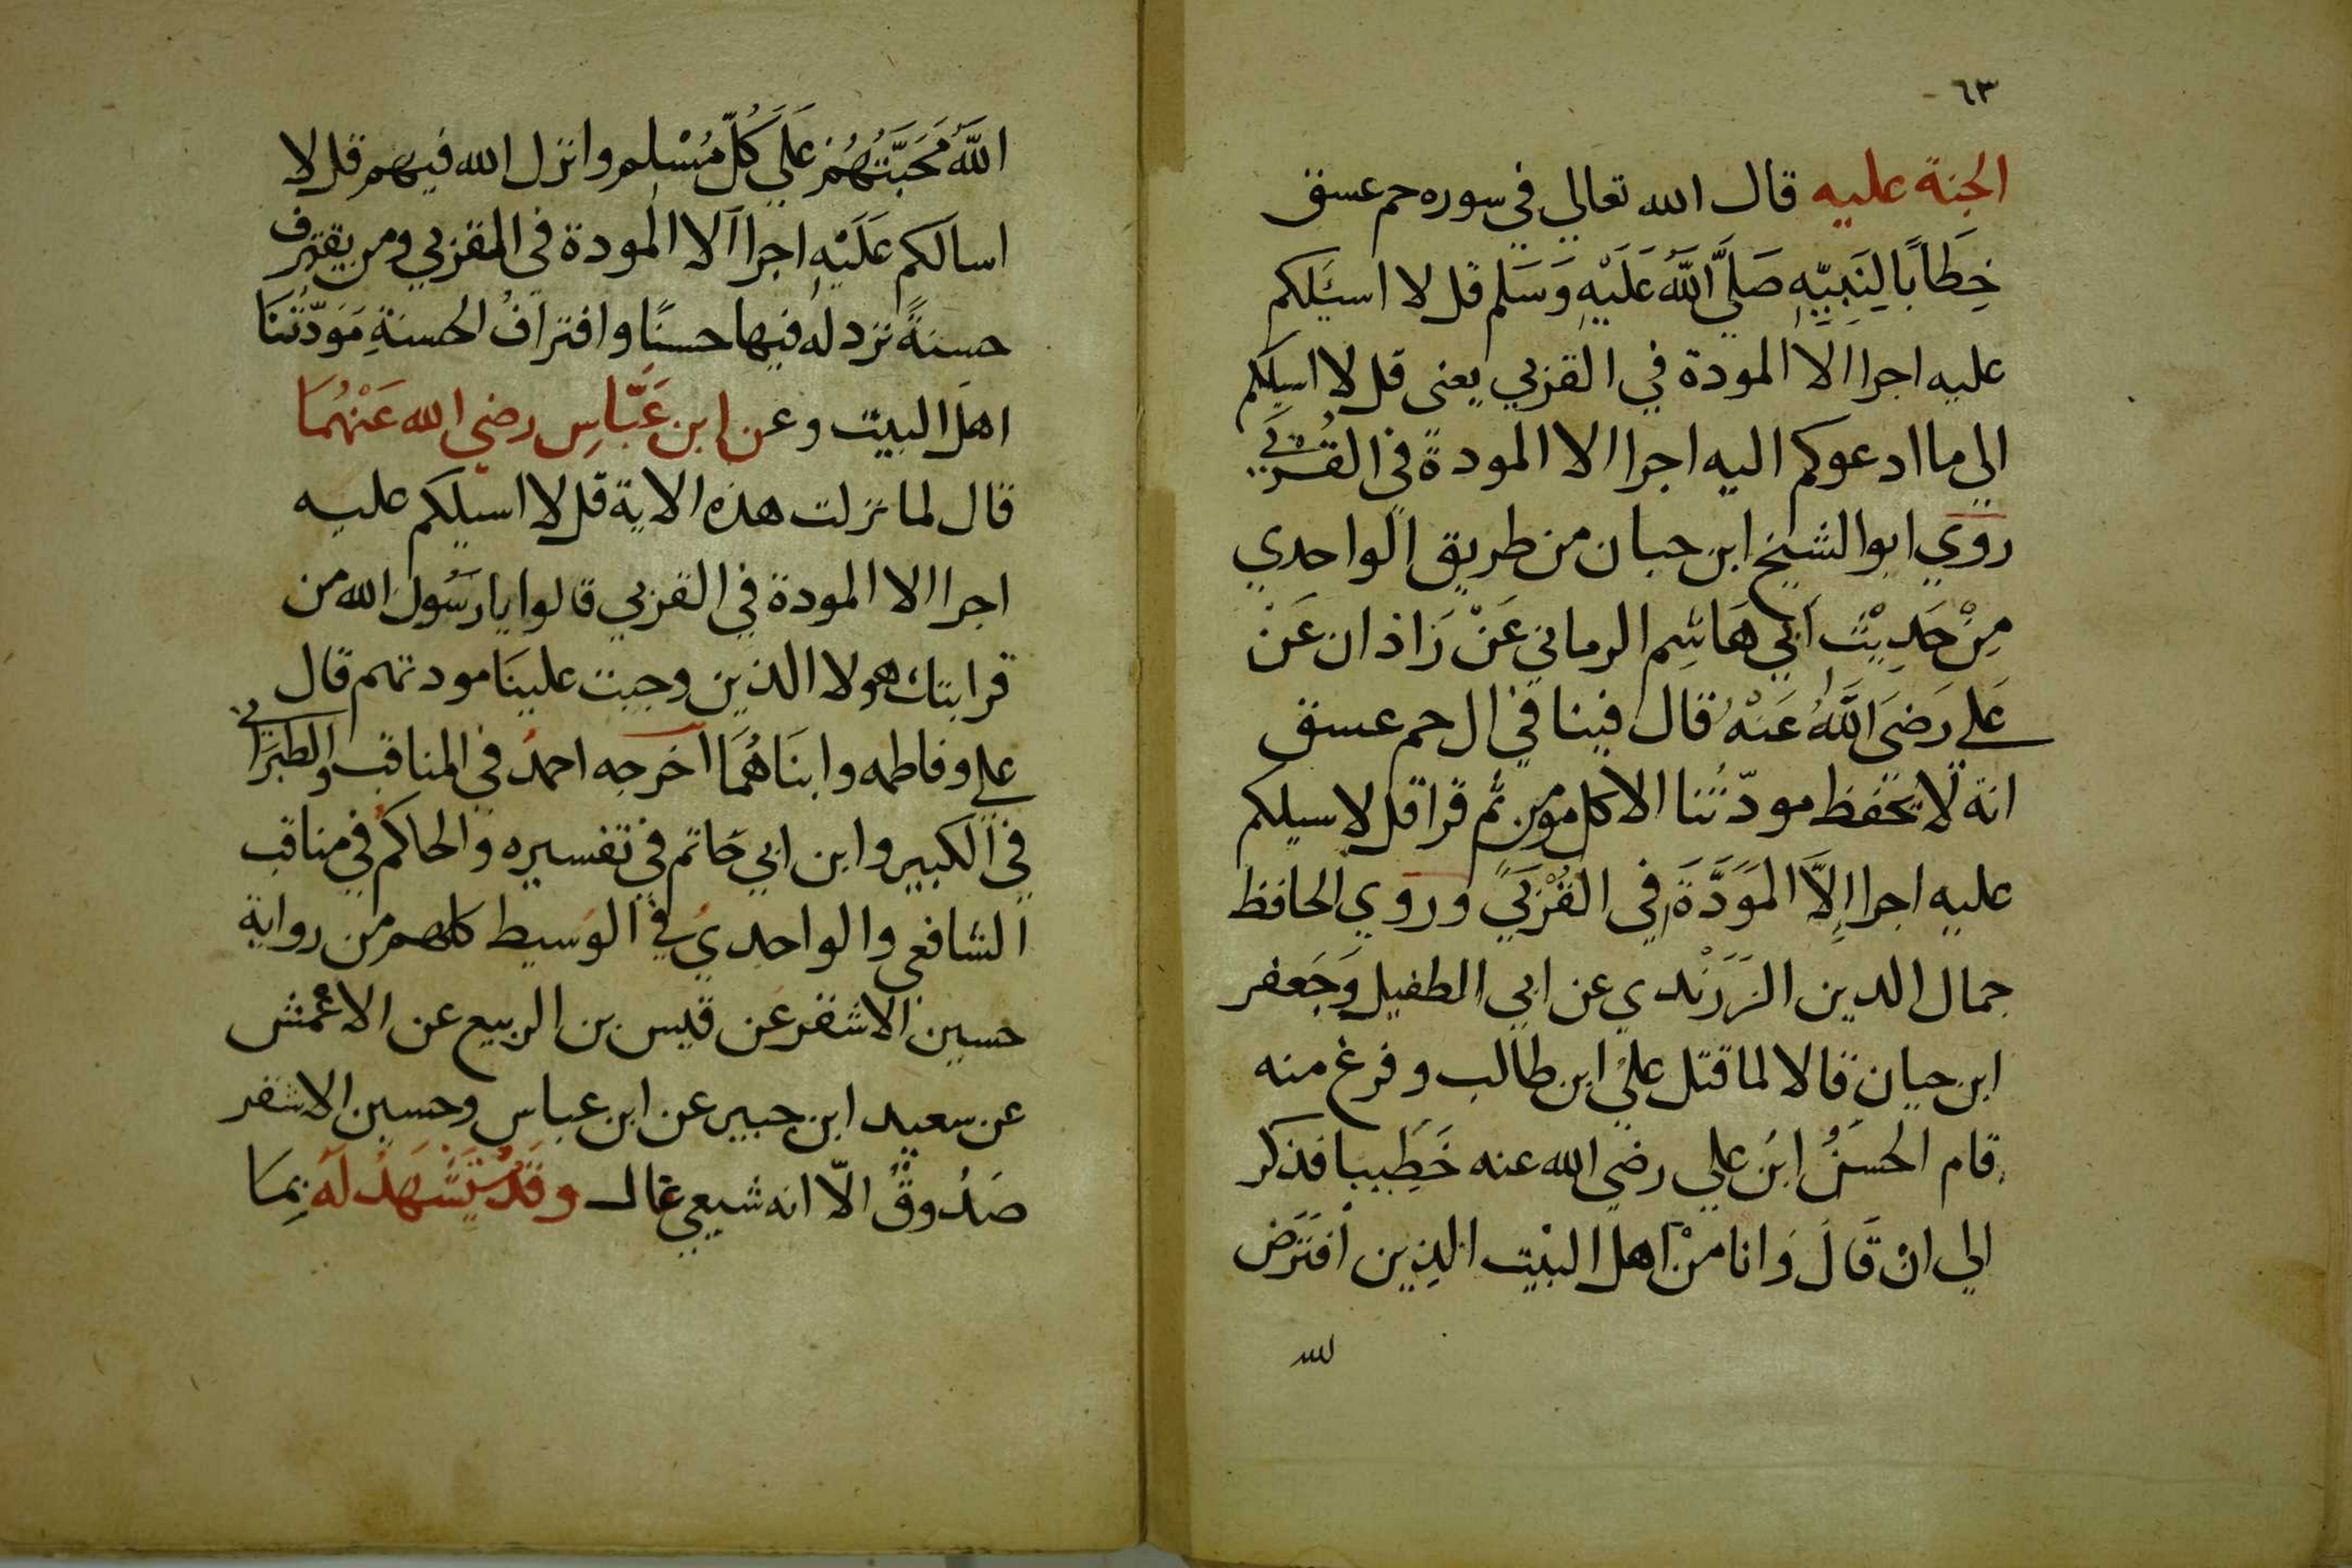 ٦٣
الجنة عليه قال الله تعالي في سوره حم عسق
خِطَابًا لِنَبِيِّهِ صَلَّي اللَّهُ عَلَيْهِ وَسَلم قل لا اسيَلكم
عليه اجرا الا المودة في القربي يعني قل لا اسيلكم
الي ما ادعوكم اليه اجرا الا المودة في القُربَي
روي ابوا الشيخ ابن حبان من طريق الواحدي
مِنْ حَدِيْث ابي هَاشِم الرماني عَنْ زَاذان عَنْ
عَلي رَضيَ اللَّهُ عَنْهُ قال فينا في ال حم عسق
انة لا يحفظ مودّتُنا الا كل مومن ثم قرا قل لا سيلكم
عليه اجرا اِلاَّ المَوَدَّةَ في القُرْبَي وروي الحافظ
جمال الدين الزَرَنْدي عن ابي الطفيل وَجَعفر
ابن حيان قالا لما قتل علي ابن طالب وفرغ منه
قام الحسَنُ ابن علي رضي الله عنه خَطِيبا فذكر
الي انْ قَالَ وَانا منْ اهل البيْت الذِين افتَرَض
لله
اللَّهُ مَحَبَّتَهُمْ عَلَي كُلّ مُسْلِم وانزل الله فيهم قل لا
اسالكم عَلَيْهِ اجرا الا المودة في القربي ومن يقترف
حسنةً نزد له فيها حسنًا وافترافُ الحسنةِ مَوَدّتُنَا
اهل البيت وعن ابن عَبَّاسِ رضي الله عَنْهُمَا
قال لما نزلت هذه الاية قل لا اسيلكم عليه
اجرا الا المودة في القربي قالوا يا رسُول الله من
قرابتك هولا الذين وجبت علينَا مودتهم قال
علي وفاطمه وابنَاهُمَا اخرجه احمدُ في المناقب والطبَراني
في الكبير وابن ابي حَاتم في تفسيره والحاكم في مناقب
الشافعي والواحديُ في الوَسيط كلهم من رواية
حسين الاشقر عَن قيس بن الربيع عن الاعْمش
عن سعيد ابن جبير عن ابن عباس وحسين الاشقر
صَدُوقٌ الاّ انه شيعي غال وقَدْ يُسْتَشْهَدُ لَهُ بِمَا